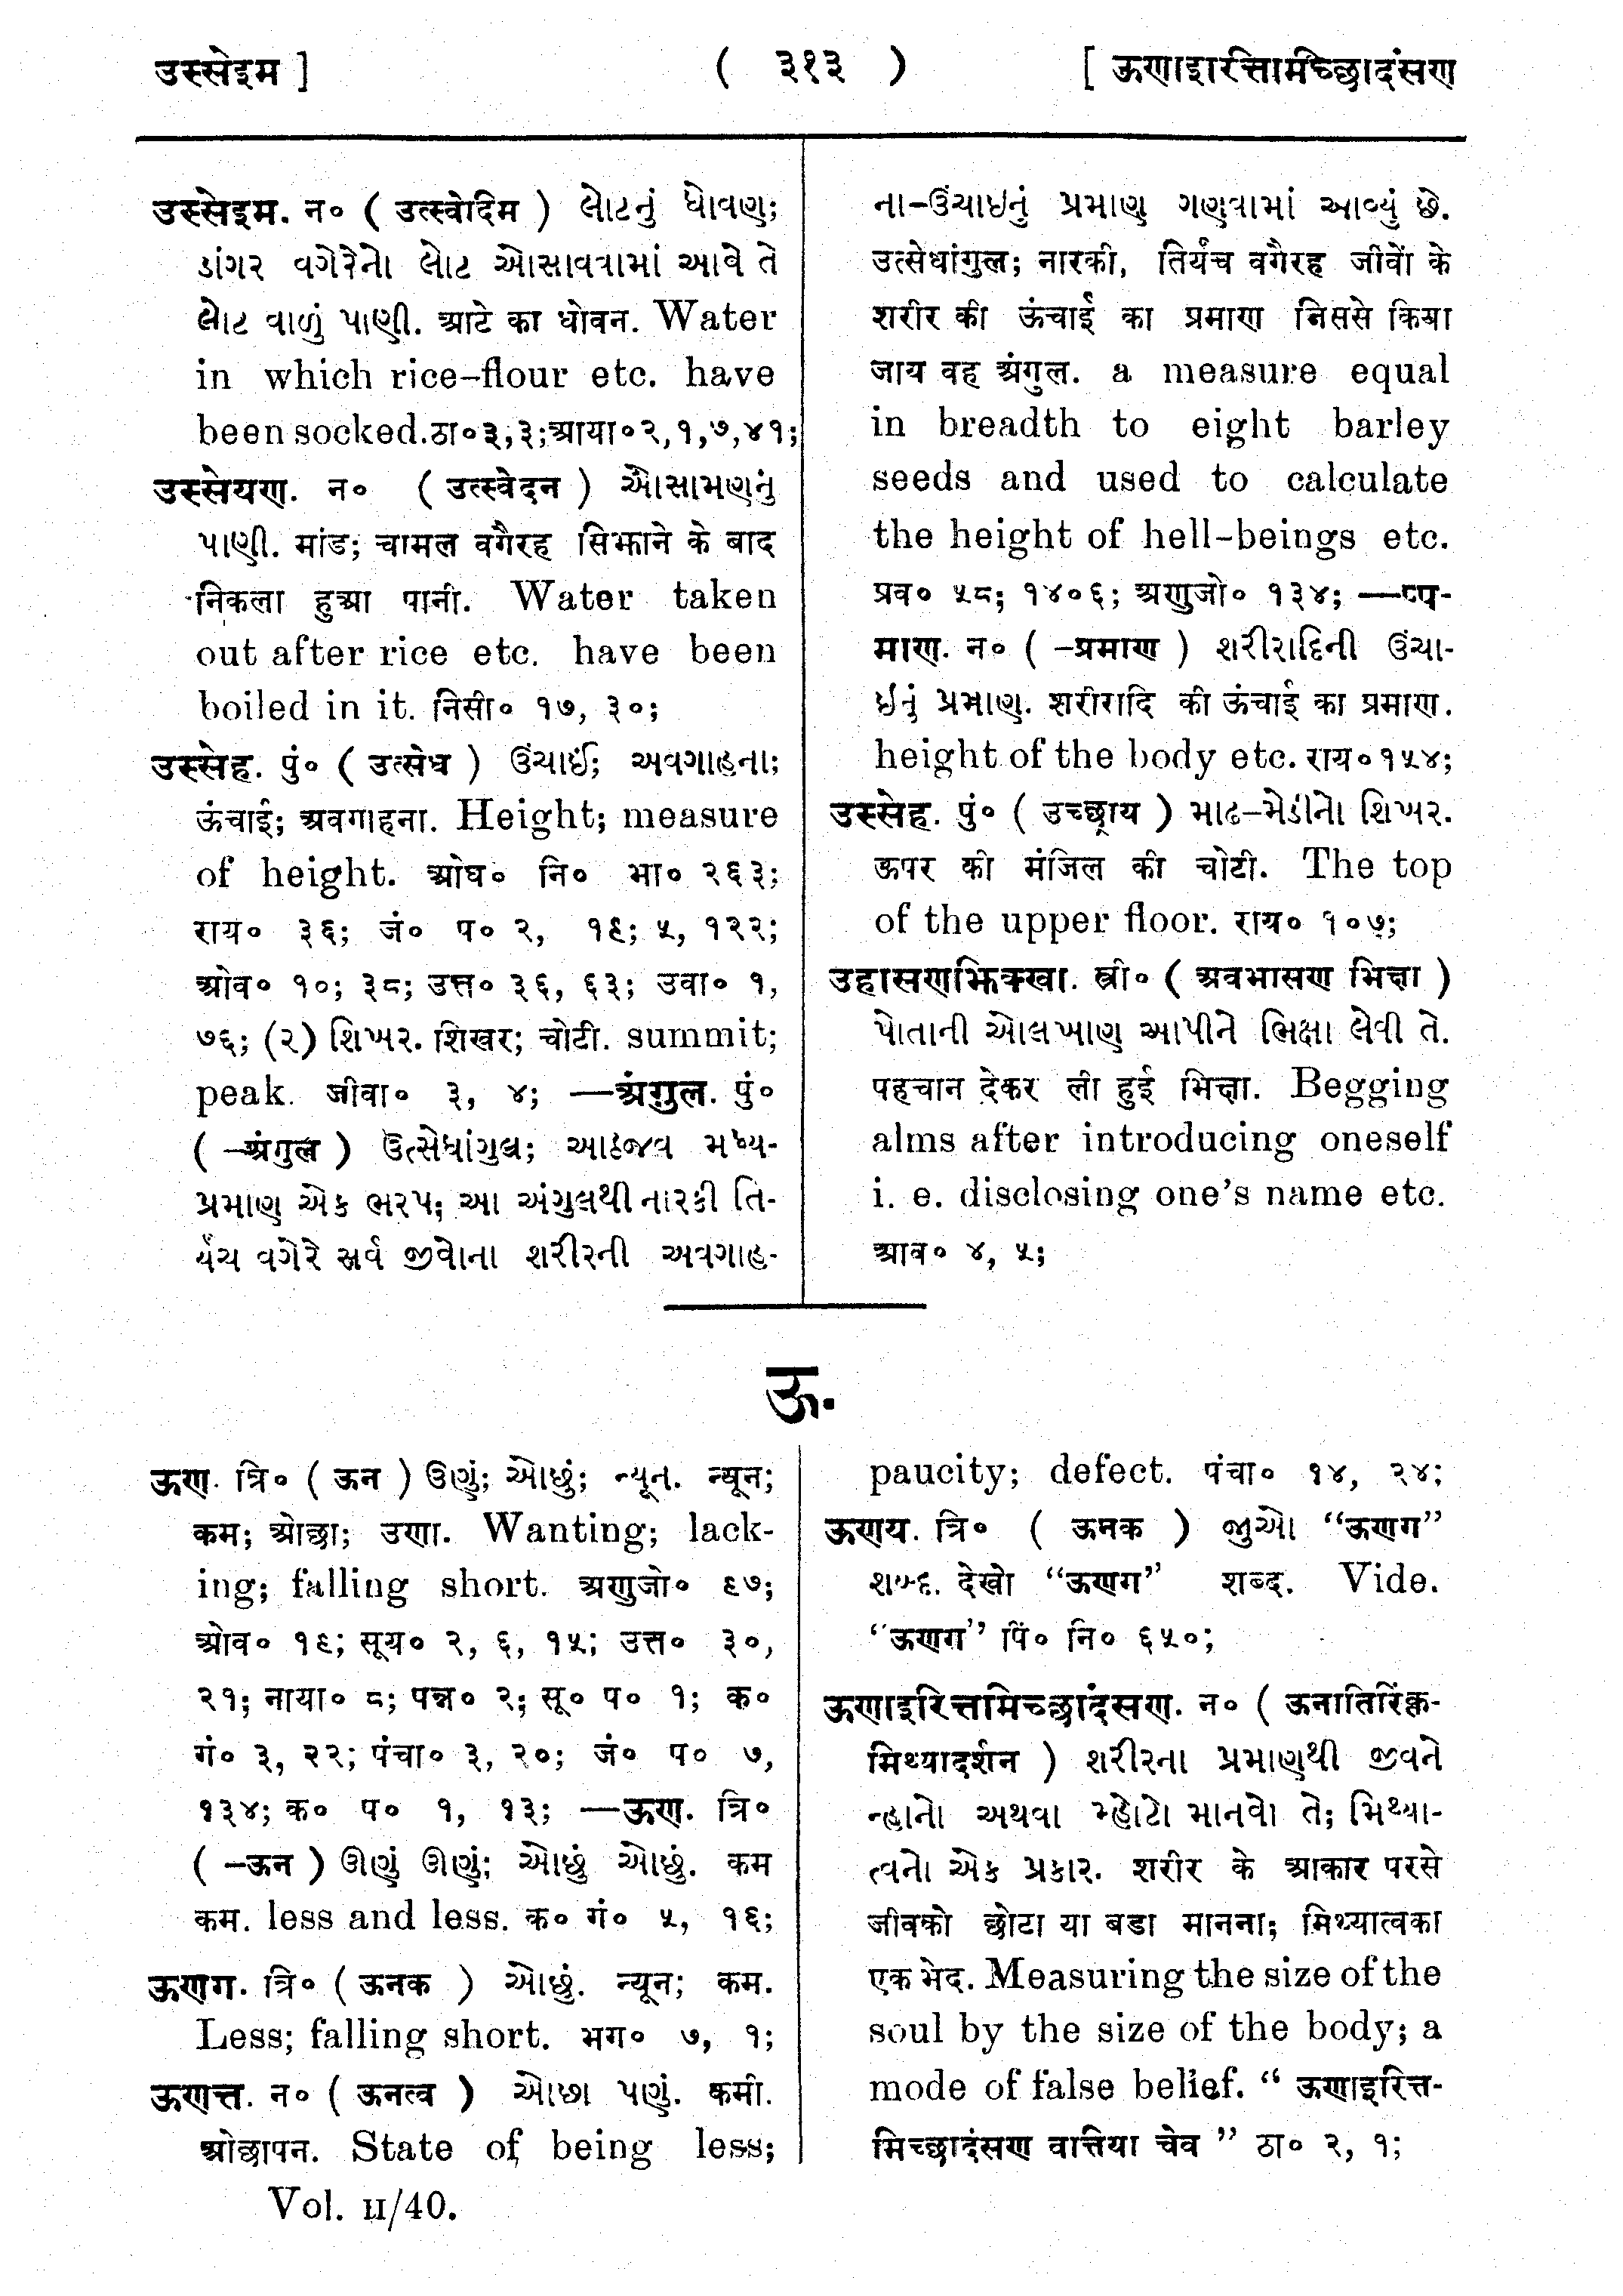 उस्सेइम ]
( ३१३ )
[ ऊणाइारत्तामच्छादंसण
उस्सेइम. न० ( उत्स्वेदिम ) લોટનું ધોવણ;
ડાંગર વગેરેનો લોટ ઓસાવવામાં આવે તે
લોટ વાળું પાણી. आटे का धोवन. Water
in which rice-flour etc. have
been socked.ठा०३,३;आया०२,१,७,४१;
उस्सेयण. न० ( उत्स्वेदन ) ઓસામણનું
પાણી. मांड; चामल वगैरह सिझाने के बाद
निकला हुआ पानी. Water taken
out after rice etc. have been
boiled in it. निसी० १७, ३०;
उस्सेह. पुं० ( उत्सेध ) ઉંચાઈ; અવગાહના;
ऊंचाई; अवगाहना. Height; measure
of height. ओघ० नि० भा० २६३;
राय० ३६; जं० प० २, १९; ५, १२२;
ओव० १०; ३८; उत्त० ३६, ६३; उवा० १,
७६; (२) શિખર. शिखर; चोटी. summit;
peak. जीवा० ३, ४; —अंगुल. पुं०
( -अंगुल ) ઉત્સેધાંગુલ; આઠજવ મધ્ય-
પ્રમાણ એક ભરપ; આ અંગુલથી નારકી તિ-
ર્યંચ વગેરે સર્વ જીવોના શરીરની અવગાહ-
ના-ઉંચાઇનું પ્રમાણ ગણવામાં આવ્યું છે.
उत्सेधांगुल; नारकी, तिर्यंच वगैरह जीवों के
शरीर की ऊंचाई का प्रमाण जिससे किया
जाय वह अंगुल. a measure equal
in breadth to eight barley
seeds and used to calculate
the height of hell-beings etc.
प्रव० ५८; १४०६; अणुजो० १३४; —प्प-
माण. न० ( -प्रमाण ) શરીરાદિની ઉંચા-
ઇનું પ્રમાણ. शरीरादि की ऊंचाई का प्रमाण.
height of the body etc. राय० १५४;
उस्सेह. पुं० ( उच्छ्राय ) માઢ-મેડીનો શિખર.
ऊपर की मंजिल की चोटी. The top
of the upper floor. राय० १०७;
उहासणभिक्खा. स्त्री० ( अवभासण भिक्षा )
પોતાની ઓલખાણ આપીને ભિક્ષા લેવી તે.
पहचान देकर ली हुई भिक्षा. Begging
alms after introducing oneself
i. e. disclosing one's name etc.
आव० ४, ५;
ऊ.
ऊण. त्रि० ( ऊन ) ઉણું; ઓછું; ન્યૂન. न्यून;
कम; ओछा; उणा. Wanting; lack-
ing; falling short. अणुजो० ९७;
ओव० १९; सूय० २, ६, १५; उत्त० ३०,
२१; नाया० ८; पन्न० २; सू० प० १; क०
गं० ३, २२; पंचा० ३, २०; जं० प० ७,
१३४; क० प० १, १३; —ऊण. त्रि०
( -ऊन ) ઊણું ઊણું; ઓછું ઓછું. कम
कम. less and less. क० गं० ५, १६;
ऊणग. त्रि० ( ऊनक ) ઓછું. न्यून; कम.
Less; falling short. भग० ७, १;
ऊणत्त. न० ( ऊनत्व ) ઓછા પણું. कमी.
ओछापन. State of being less;
Vol. II/40.
paucity; defect. पंचा० १४, २४;
ऊणय. त्रि० ( ऊनक ) જુઓ "ऊणग"
શબ્દ. देखो "ऊणग" शब्द. Vide.
"ऊणग" पिं० नि० ६५०;
ऊणाइरित्तमिच्छादंसण. न० ( ऊनातिरिक्त-
मिथ्यादर्शन ) શરીરના પ્રમાણથી જીવને
ન્હાનો અથવા મ્હોટો માનવો તે; મિથ્યા-
ત્વનો એક પ્રકાર. शरीर के आकार परसे
जीवको छोटा या बडा मानना; मिथ्यात्वका
एक भेद. Measuring the size of the
soul by the size of the body; a
mode of false belief. " ऊणाइरित्त-
मिच्छादंसण वात्तिया चेव " ठा० २, १;